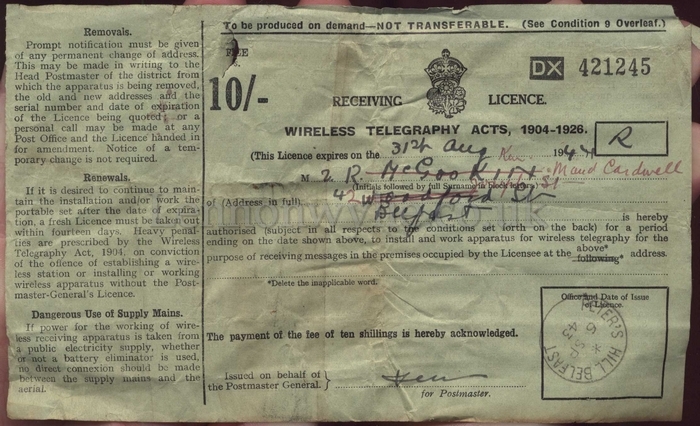 Removals.
Prompt notification must be given
of any permanent change of address.
This may be made in writing to the
Head Postmaster of the district from
which the apparatus is being removed,
the old and new addresses and the
serial number and date of expiration
of the Licence being quoted; or a
personal call may be made at any
Post Office and the Licence handed in
for amendment. Notice of a tem-
porary change is not required.
Renewals.
If it is desired to continue to main-
tain the installation and/or work the
portable set after the date of expira-
tion, a fresh Licence must be taken out
within fourteen days. Heavy penal-
ties are prescribed by the Wireless
Telegraphy Act, 1904, on conviction
of the offence of establishing a wire-
less station or installing or working
wireless apparatus without the Post-
master-General's Licence.
Dangerous Use of Supply Mains.
If power for the working of wire-
less receiving apparatus is taken from
a public electricity supply, whether
or not a battery eliminator is used,
no direct connexion should be made
between the supply mains and the
aerial.
To be produced on demand—NOT TRANSFERABLE. (See Condition 9 Overleaf.)
10/-
DX 421245
RECEIVING LICENCE.
WIRELESS TELEGRAPHY ACTS, 1904-1926.
R
(This Licence expires on the 31st Aug 194
M R. Maud Cardwell
(Initials followed by full Surname in block letters)
of (Address in full) 42 Woodford St
Belfast is hereby
authorised (subject in all respects to the conditions set forth on the back) for a period
ending on the date shown above, to install and work apparatus for wireless telegraphy for the
purpose of receiving messages in the premises occupied by the Licensee at the above* following* address.
*Delete the inapplicable word.
The payment of the fee of ten shillings is hereby acknowledged.
Issued on behalf of
the Postmaster General.
for Postmaster.
Office and Date of Issue
of Licence.
PETER'S HILL BELFAST